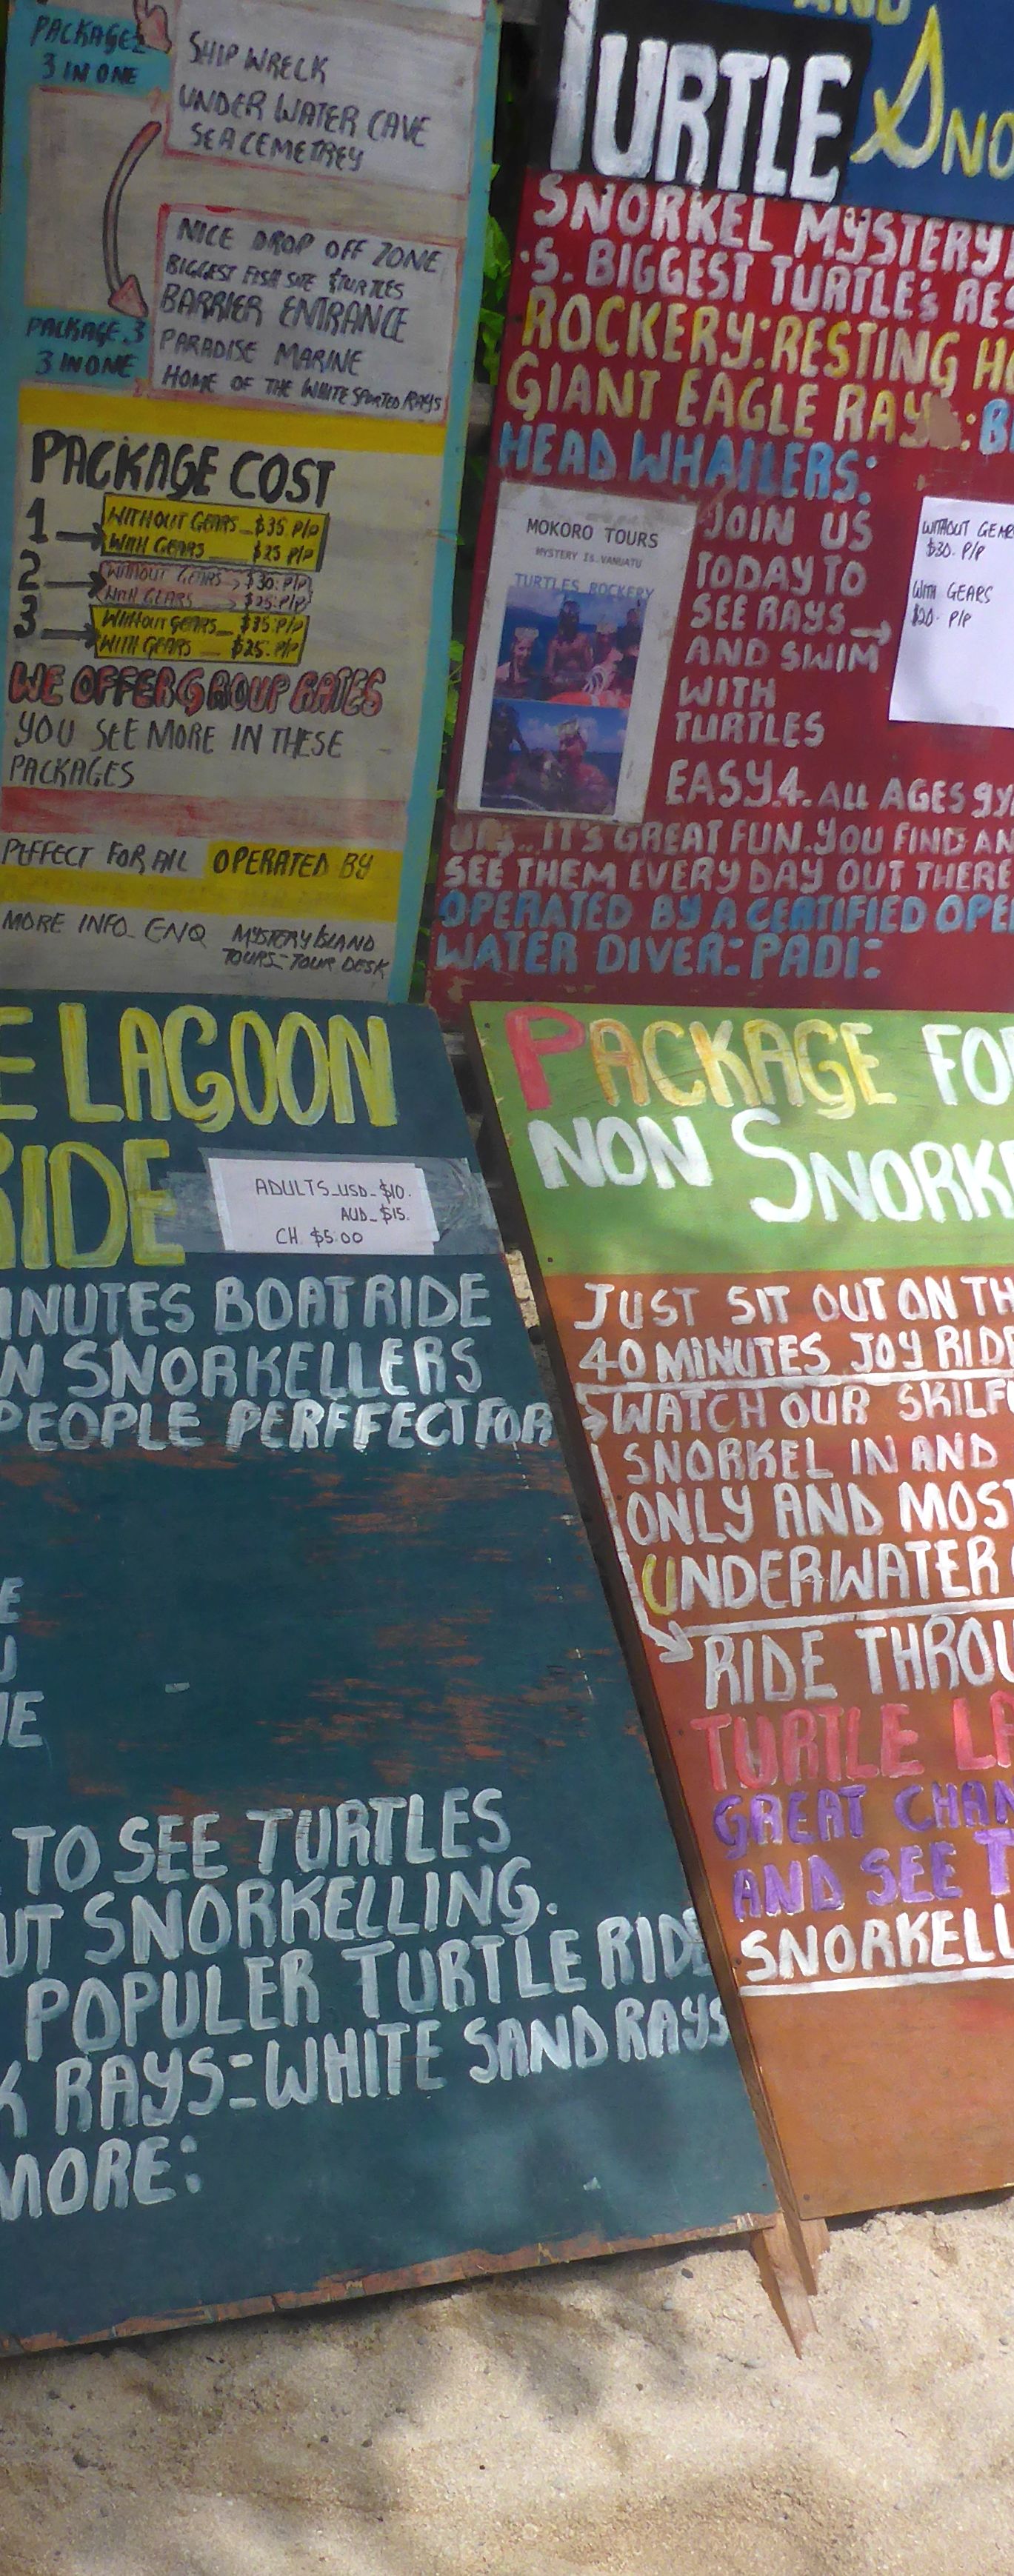 PACKAGE 2
3 IN ONE
SHIP WRECK
UNDER WATER CAVE
SEA CEMETREY
NICE DROP OFF ZONE
BIGGEST FISH SITE & TURTLES
BARRIER ENTRANCE
PARADISE MARINE
HOME OF THE WHITE SPORTED RAYS
PACKAGE.3
3 IN ONE
PACKAGE COST
1 WITHOUT GEARS_$35 P/P
WITH GEARS_ $25 P/P
2 WITHOUT GEARS $30:P/P
WITH GEARS $25:P/P
3 WITHOUT GEARS_ $35:P/P
WITH GEARS_ $25.P/P
WE OFFER GROUP RATES
YOU SEE MORE IN THESE
PACKAGES
PEFFECT FOR All OPERATED BY
MORE INFO_ ENQ MYSTERY ISLAND
TOURS-TOUR DESK
AND
TURTLE SNO
SNORKEL MYSTERY
'S. BIGGEST TURTLE'S RES
ROCKERY:RESTING HO
GIANT EAGLE RAY :B
HEAD WHAILERS:
MOKORO TOURS
MYSTERY IS. VANUATU
TURTLES ROCKERY
JOIN US
TODAY TO
SEE RAYS
AND SWIM
WITH
TURTLES
WITHOUT GEARS
$30. P/P
WITH GEARS
$20. P/P
EASY.4. ALL AGES
IT'S GREAT FUN.YOU FIND AN
SEE THEM EVERY DAY OUT THERE
OPERATED BY A CERTIFIED OPE
WATER DIVER: PADI:
E LAGOON
RIDE
ADULTS_USD_$10.
AUD_$15.
CH. $5.00
INUTES BOAT RIDE
N SNORKELLERS
PEOPLE PERFFECT FOR
E
U
IE
TO SEE TURTLES
UT SNORKELLING.
POPULER TURTLE RIDE
K RAYS=WHITE SAND RAYS
MORE:
PACKAGE FO
NON SNORK
JUST SIT OUT ON TH
40 MINUTES JOY RIDE
WATCH OUR SKILFU
SNORKEL IN AND
ONLY AND MOST
UNDERWATER
RIDE THROU
TURTLE LA
GREAT CHAN
AND SEE T
SNORKELL